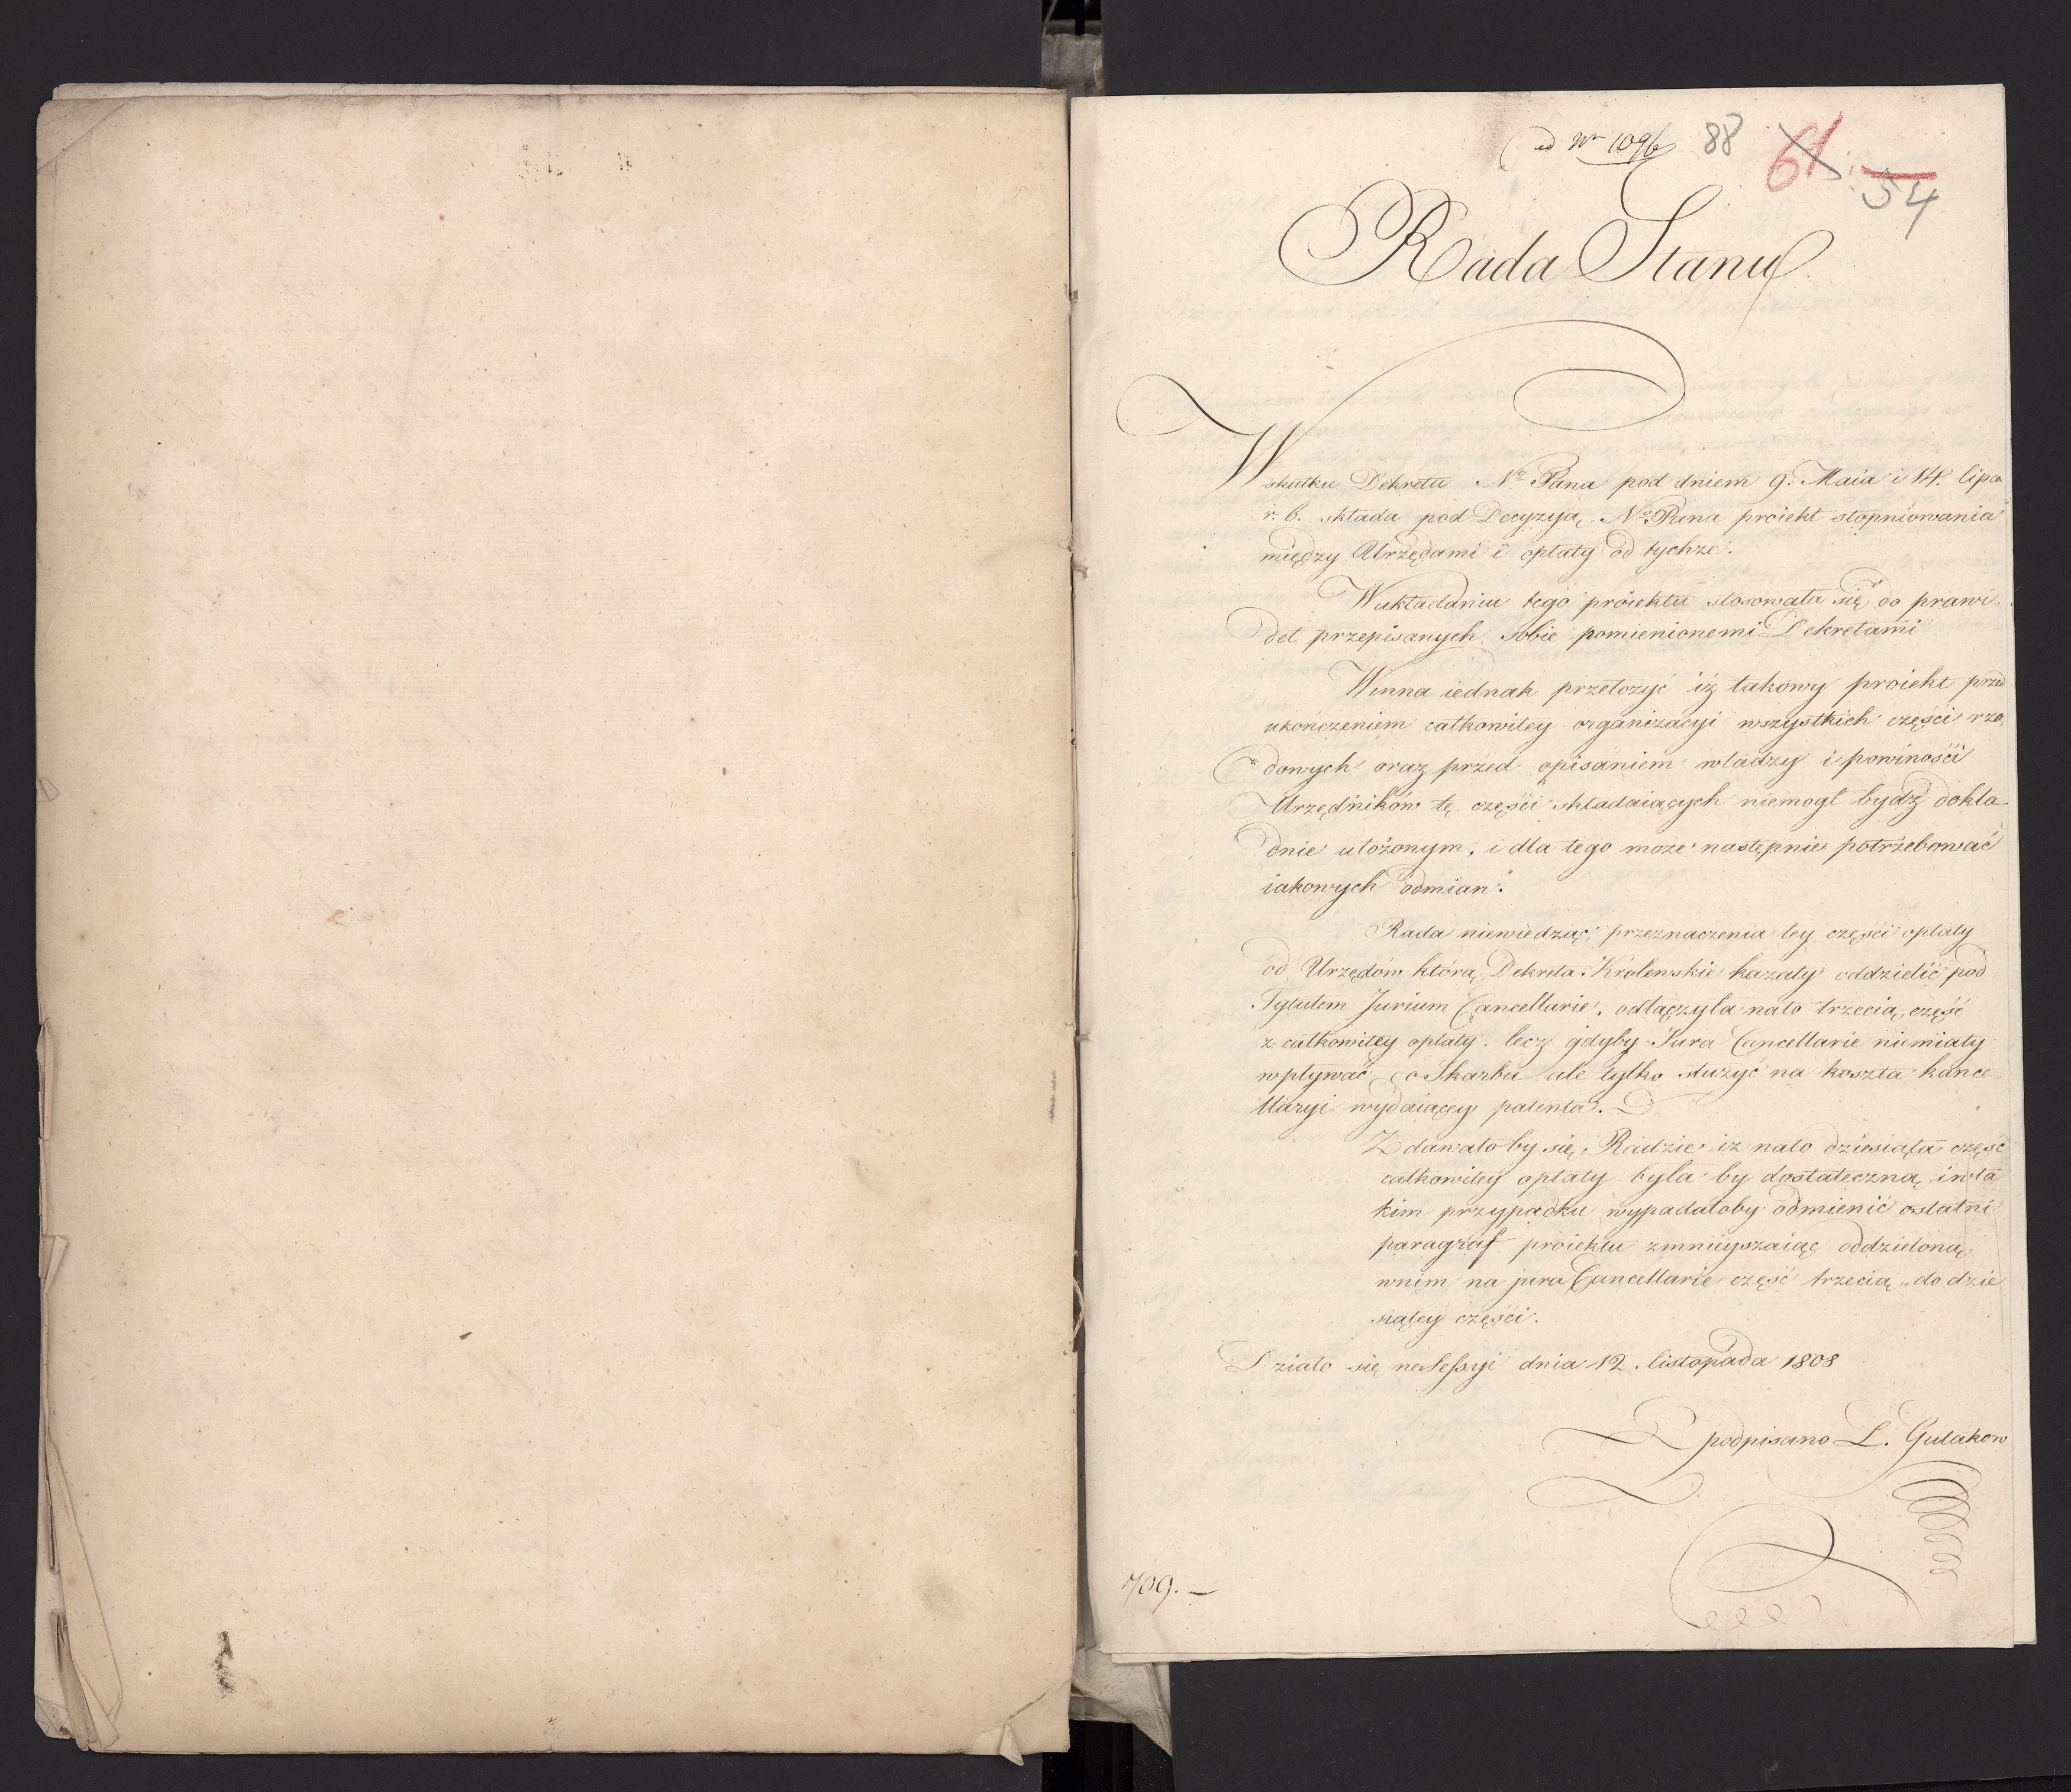 ad Nr 1096 88 61 54
Rada Stanu
W skutku Dekretu No Pana pod dniem 9. Maia i 14. lipca
r. b. składa pod Decyzyą No Pana proiekt stopniowania
między Urzędami i opłaty od tychże.
W układaniu tego proiektu stosowała się do prawi-
deł przepisanych sobie pomienionemi Dekretami
Winna iednak przełożyć iż takowy proiekt przed
ukończeniem całkowitey organizacyi wszystkich części rzą
dowych oraz przed opisaniem władzy i powiności
Urzędników tę części składaiących niemogł bydź dokła-
dnie ułożonym, i dla tego może następnie potrzebować
iakowych odmian.
Rada niewiedząc przeznaczenia tey części opłaty
od Urzędów którą Dekreta Królewskie kazały oddzielić pod
Tytułem Jurium Cancellarie, odłączyła nato trzecią część
z całkowitey opłaty. lecz gdyby Jura Cancellarie niemiały
wpływać do Skarbu ale tylko służyć na koszta kance
llaryi wydaiącey patenta.
Zdawało by się Radzie iz nato dziesiąta część
całkowitey opłaty była by dostateczną, i w ta
kim przypadku wypadałoby odmienić ostatni
paragraf proiektu zmnieyszaiąc oddzieloną
wnim na jura Cancellarie część trzecią do dzie
siątey części.
Działo się na Sessyi dnia 12. listopada 1808
podpisano L. Gutakow
709.